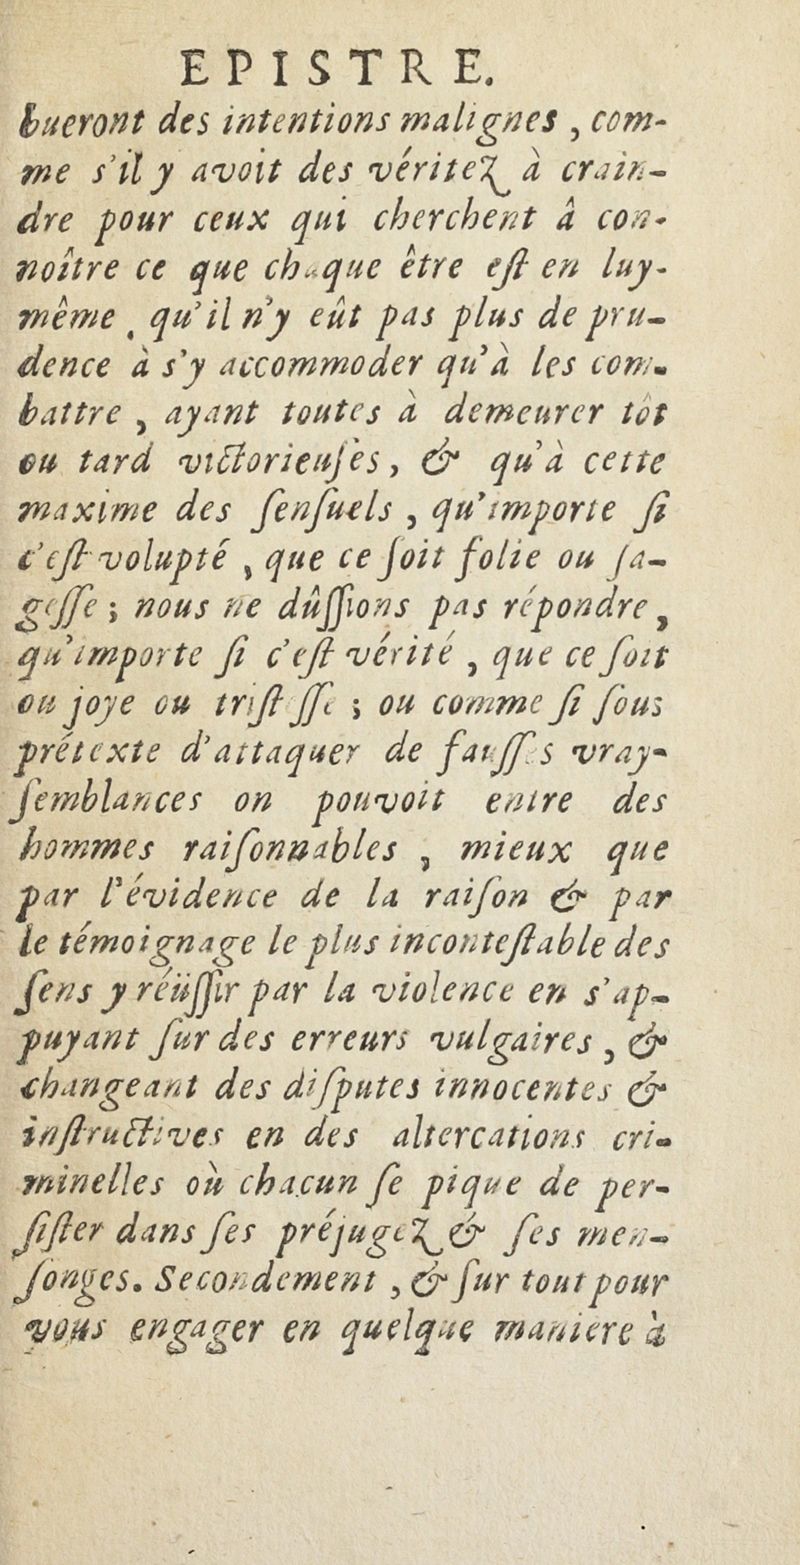 EPISTRE.
bueront des intentions malignes , com-
me s'il y avoit des véritez à crain-
dre pour ceux qui cherchent à con-
noître ce que chaque être eſt en luy-
même , qu'il n'y eût pas plus de pru-
dence à s'y accommoder qu'à les com-
battre , ayant toutes à demeurer tôt
ou tard victorieuſes, & qu'à cette
maxime des ſenſuels , qu'importe ſi
c'eſt volupté , que ce ſoit folie ou ſa-
geſſe ; nous ne dûſſions pas répondre ,
qu'importe ſi c'eſt vérité , que ce ſoit
ou joye ou triſteſſe ; ou comme ſi ſous
prétexte d'attaquer de fauſſes vray-
ſemblances on pouvoit entre des
hommes raiſonnables , mieux que
par l'évidence de la raiſon & par
le témoignage le plus inconteſtable des
ſens y réüſſir par la violence en s'ap-
puyant ſur des erreurs vulgaires , &
changeant des diſputes innocentes &
inſtructives en des altercations cri-
minelles où chacun ſe pique de per-
ſiſter dans ſes préjugez & ſes men-
ſonges. Secondement , & ſur tout pour
vous engager en quelque maniere à